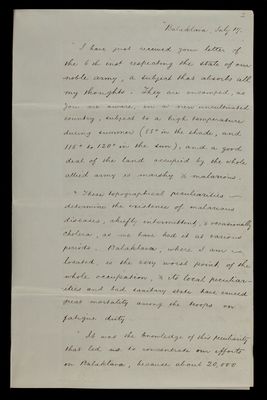 2
"Balaklava, July 19.
"I have just received your letter of
the 6th inst respecting the state of our
noble army, a subject that absorbs all
my thoughts. They are encamped, as
you are aware, in a new uncultivated
country, subject to a high temperature
during summer (85° in the shade, and
115° to 120° in the sun), and a good
deal of the land occupied by the whole
allied army is marshy & malarious.
"These topographical peculiarities
determine the existence of malarious
diseases, chiefly intermittent, & occasionally
cholera, as we have had it at various
periods. Balaklava, where I am
located, is the very worst point of the
whole occupation, & its local peculiar-
ities and bad sanitary state have caused
great mortality among the troops on
fatigue duty.
"It was the knowledge of this peculiarity
that led us to concentrate our efforts
on Balaklava, because about 20,000